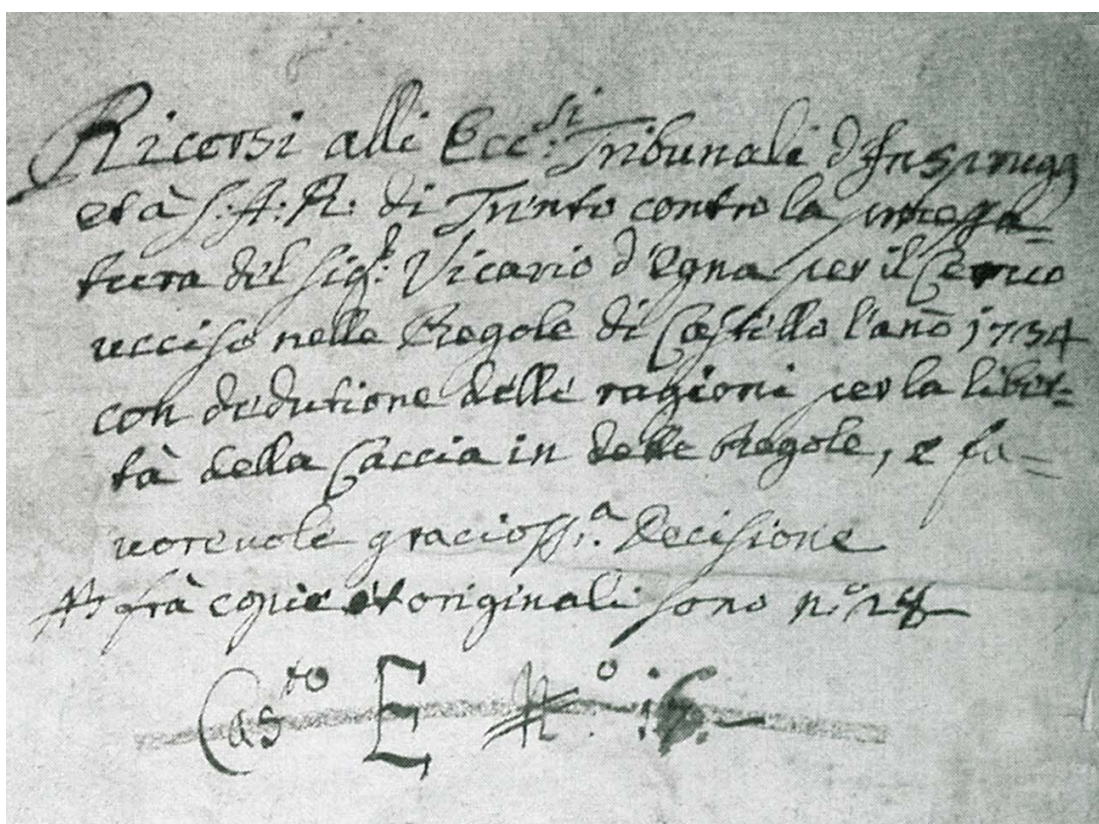 Ricorsi alli Ecc:si Tribunali d'Insprugg
et à S: A: R: di Trento contro la
tura del Sigr: Vicario d'Egna per il Cervo
ucciso nelle Regole di Castello l'anõ 1734
con dedutione delle ragioni per la liber=
tà della Caccia in dette Regole, e fa=
uoreuole gracioss:a Decisione
frà copie et originali sono n:o
Cas:to E N:o